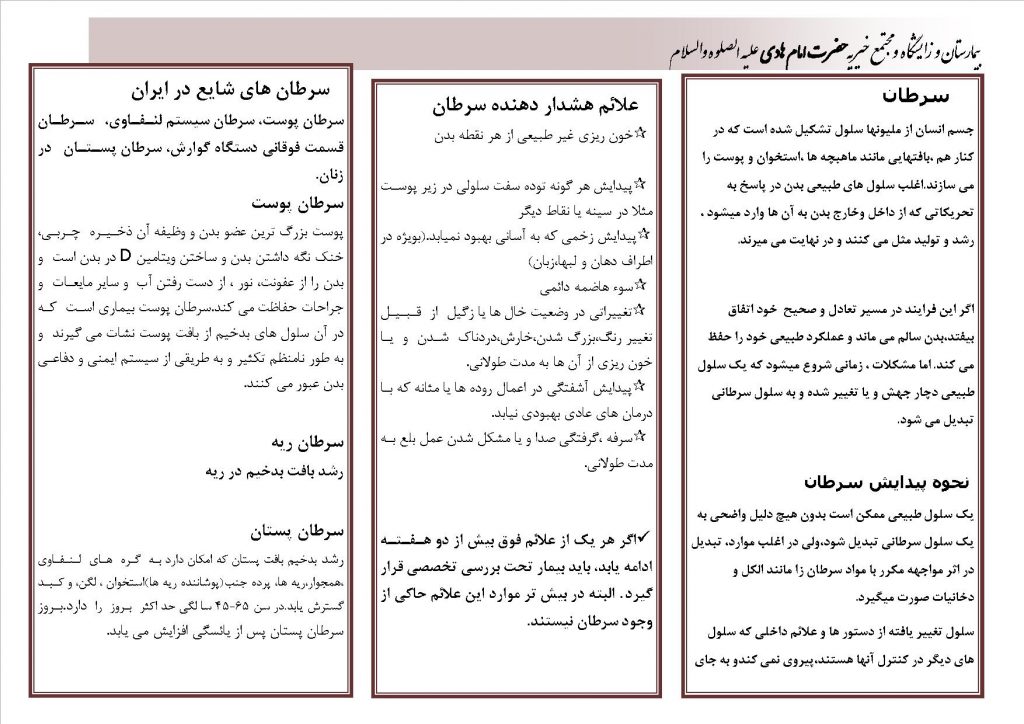 بیمارستان و زایشگاه و مجتمع خیریه حضرت امام هادی علیه الصلوه والسلام
سرطان
جسم انسان از ملیونها سلول تشکیل شده است که در
کنار هم ،بافتهایی مانند ماهیچه ها ،استخوان و پوست را
می سازند.اغلب سلول های طبیعی بدن در پاسخ به
تحریکاتی که از داخل وخارج بدن به آن ها وارد میشود ،
رشد و تولید مثل می کنند و در نهایت می میرند.
اگر این فرایند در مسیر تعادل و صحیح خود اتفاق
بیفتد،بدن سالم می ماند و عملکرد طبیعی خود را حفظ
می کند. اما مشکلات ، زمانی شروع میشود که یک سلول
طبیعی دچار جهش و یا تغییر شده و به سلول سرطانی
تبدیل می شود.
نحوه پیدایش سرطان
یک سلول طبیعی ممکن است بدون هیچ دلیل واضحی به
یک سلول سرطانی تبدیل شود،ولی در اغلب موارد، تبدیل
در اثر مواجهه مکرر با مواد سرطان زا مانند الکل و
دخانیات صورت میگیرد.
سلول تغییر یافته از دستور ها و علائم داخلی که سلول
های دیگر در کنترل آنها هستند،پیروی نمی کندو به جای
علائم هشدار دهنده سرطان
☆خون ریزی غیر طبیعی از هر نقطه بدن
☆پیدایش هر گونه توده سفت سلولی در زیر پوست
مثلا در سینه یا نقاط دیگر
☆پیدایش زخمی که به آسانی بهبود نمیابد.(بویژه در
اطراف دهان و لبها،زبان)
☆سوء هاضمه دائمی
☆تغییراتی در وضعیت خال ها یا زگیل از قبیل
تغییر رنگ،بزرگ شدن،خارش،دردناک شدن و یا
خون ریزی از آن ها به مدت طولانی.
☆پیدایش آشفتگی در اعمال روده ها یا مثانه که با
درمان های عادی بهبودی نیابد.
☆سرفه ،گرفتگی صدا و یا مشکل شدن عمل بلع به
مدت طولانی.
✓اگر هر یک از علائم فوق بیش از دو هفته
ادامه یابد، باید بیمار تحت بررسی تخصصی قرار
گیرد. البته در بیش تر موارد این علائم حاکی از
وجود سرطان نیستند.
سرطان های شایع در ایران
سرطان پوست، سرطان سیستم لنفاوی، سرطان
قسمت فوقانی دستگاه گوارش، سرطان پستان در
زنان.
سرطان پوست
پوست بزرگ ترین عضو بدن و وظیفه آن ذخیره چربی،
خنک نگه داشتن بدن و ساختن ویتامین D در بدن است و
بدن را از عفونت، نور ، از دست رفتن آب و سایر مایعات و
جراحات حفاظت می کند.سرطان پوست بیماری است که
در آن سلول های بدخیم از بافت پوست نشات می گیرند و
به طور نامنظم تکثیر و به طریقی از سیستم ایمنی و دفاعی
بدن عبور می کنند.
سرطان ریه
رشد بافت بدخیم در ریه
سرطان پستان
رشد بدخیم بافت پستان که امکان دارد به گره های لنفاوی
،همجوار،ریه ها، پرده جنب(پوشاننده ریه ها)استخوان ، لگن، و کبد
گسترش یابد.در سن ۶۵-۴۵ سالگی حداکثر بروز را دارد.بروز
سرطان پستان پس از یائسگی افزایش می یابد.